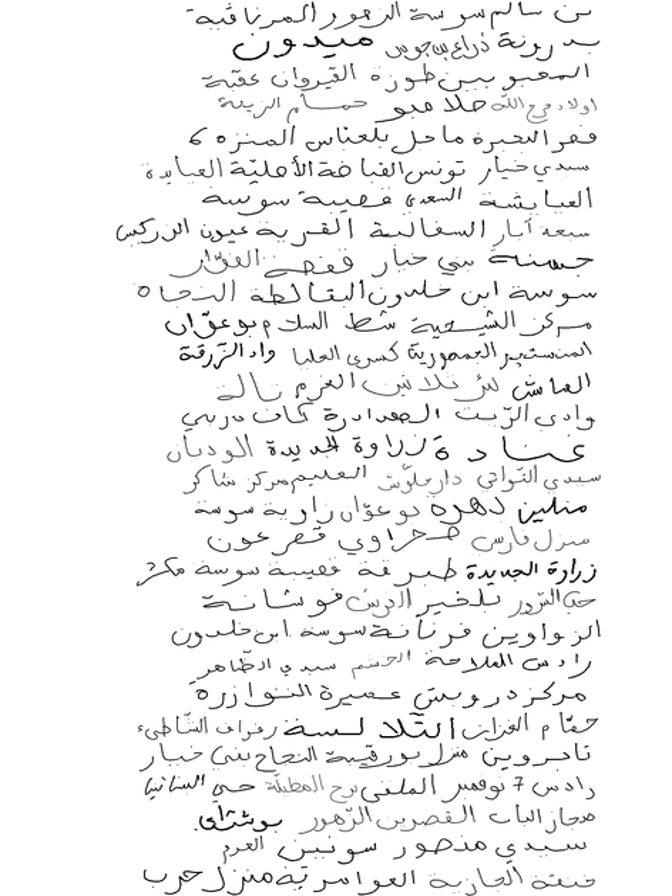 بن سالم سوسة الزهور المرناقية
بدرونة ذراع بن جودر ميدون
المعبو بين طوزة القيروان عقبة
اولاد فرج الله صلامبو حمام الزيدة
قصر البحيرة ماجل بلعباس المنزه 6
سيدي خيار تونس القباضة الأصلية العبابدة
العيايشة السعدي قصيبة سوسة
سبعة آبار السفالية القرية عيون الزركين
جهينة بني خيار قفصة الفوار
سوسة ابن خلدون البقالطة النجاة
مركز الشيحية شط السلام بوعوان
المنستير الجمهورية كسرى العليا واد الزرقة
العايش بئر ثلاثين العزم تالة
وادى الزيت الصمادرة كاف دربي
غنادة زراوة الجديدة الوديان
سيدي التواتي دار علوش العليم مركز شاكر
منلين دهرة بوعوان زاوية سوسة
منزل فارس صحراوي قصر عون
زراوة الجديدة طبرقة قصيبة سوسة مكثر
حي الزهور بلخير فوشانة
الزواوين فرنانة سوسة ابن خلدون
رادس الملاحة سيدي الظاهر
مركز درويش عميرة النوازرة
حمام الغزاز الثلالسة رفراف الشاطىء
تاجروين منزل بورقيبة النجاح بني خيار
رادس 7 نوفمبر الملقى برج حي
مجاز الباب القصرين الزهور بوشثاى
سيدي منصور سونين العزم
خبنة الجازية العوامرية منزل حرب